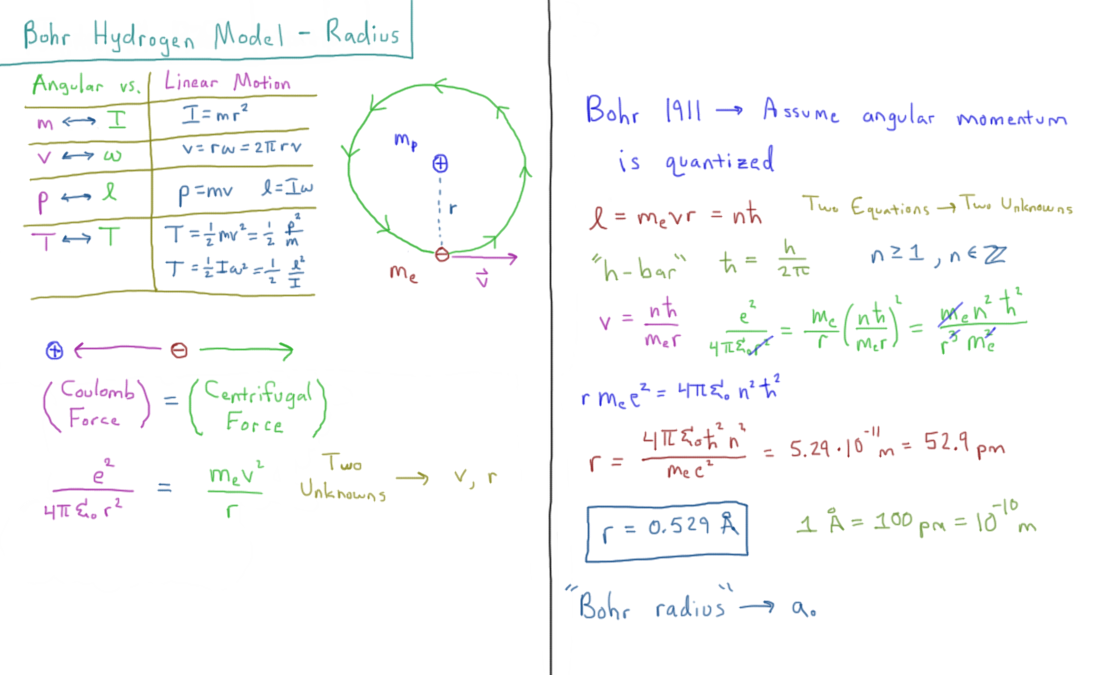 Bohr Hydrogen Model - Radius
Angular vs. Linear Motion
m ↔ I I = mr²
v ↔ ω v = rω = 2πrν
p ↔ l p = mv l = Iω
T ↔ T T = ½mv² = ½ p²/m
T = ½Iω² = ½ l²/I
m_p
⊕
r
⊖
m_e
v⃗
⊕ ← ⊖ →
(Coulomb Force) = (Centrifugal Force)
e²/4πε₀r² = m_e v²/r Two Unknowns → v, r
Bohr 1911 → Assume angular momentum
is quantized
l = m_e v r = nħ Two Equations → Two Unknowns
"h-bar" ħ = h/2π n ≥ 1, n ∈ ℤ
v = nħ/m_e r e²/4πε₀r² = m_e/r (nħ/m_e r)² = m_e n² ħ²/r³ m_e²
r m_e e² = 4πε₀ n² ħ²
r = 4πε₀ħ² n²/m_e e² = 5.29·10⁻¹¹ m = 52.9 pm
r = 0.529 Å 1 Å = 100 pm = 10⁻¹⁰ m
"Bohr radius" → a₀